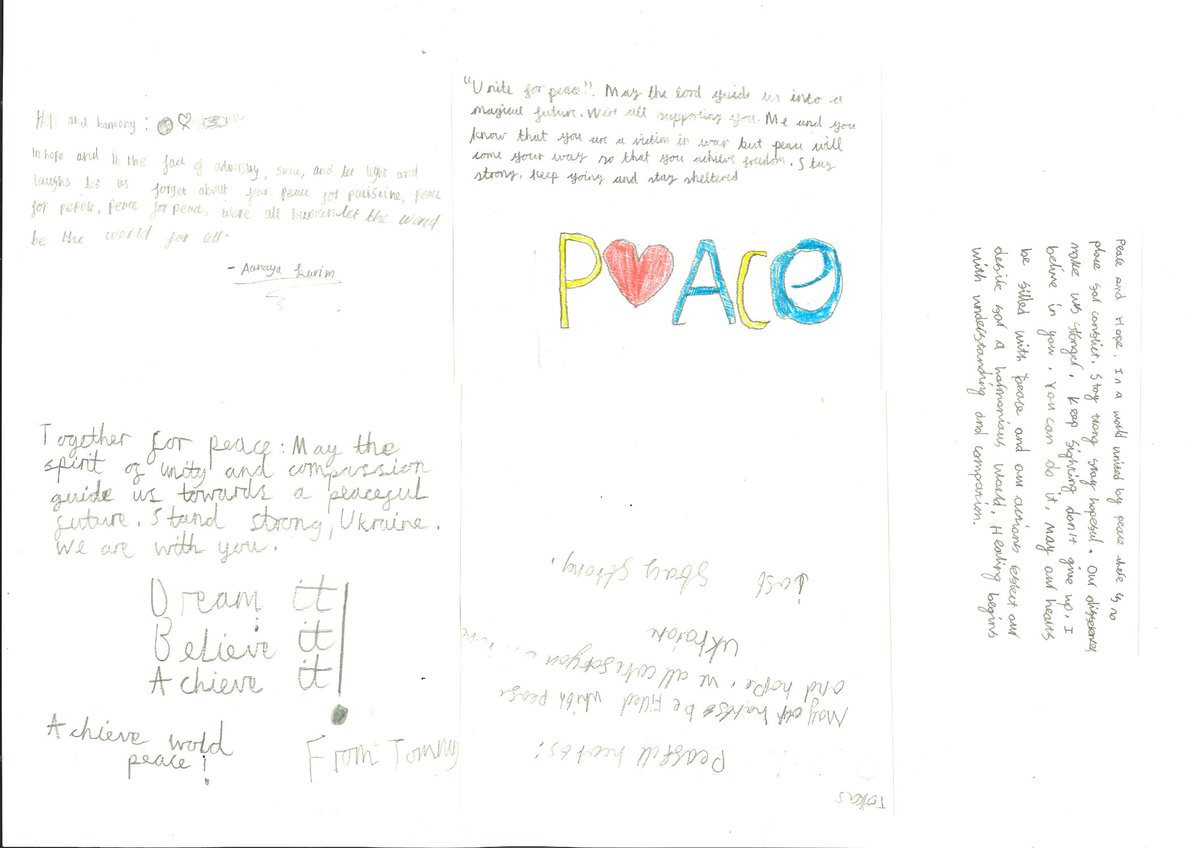 Hope and harmony:
In hope and in the face of adversity, and let light and
laughs let us forget about fear peace for palestine, peace
for people, peace for peace, were all human let the world
be the world for all.
- Aanaya Karim
"Unite for peace". May the lord guide us into a
magical future. We're all supporting you. Me and you
know that you are a victim in war but peace will
come your way so that you achieve freedom. Stay
strong, keep going and stay sheltered
P ACE
Together for peace: May the
spirit of unity and compassion
guide us towards a peaceful
future. Stand strong, Ukraine.
We are with you.
Dream it
Believe it
Achieve it!
Achieve world
peace!
From Tommy
Tokas
Peacefull heartes:
May be filled whith peace
and hope, we all you
Ukraian
Just stay strong.
Peace and Hope. In a world united by peace there is no
place for conflict. Stay trong stay hopeful. Our
make us stonger. Keep fighting don't give up, I
believe in you, You can do it, May our hearts
be filled with peace, and our actions reflect our
desire for a harmonious world, Healing begins
with understanding and compassion.